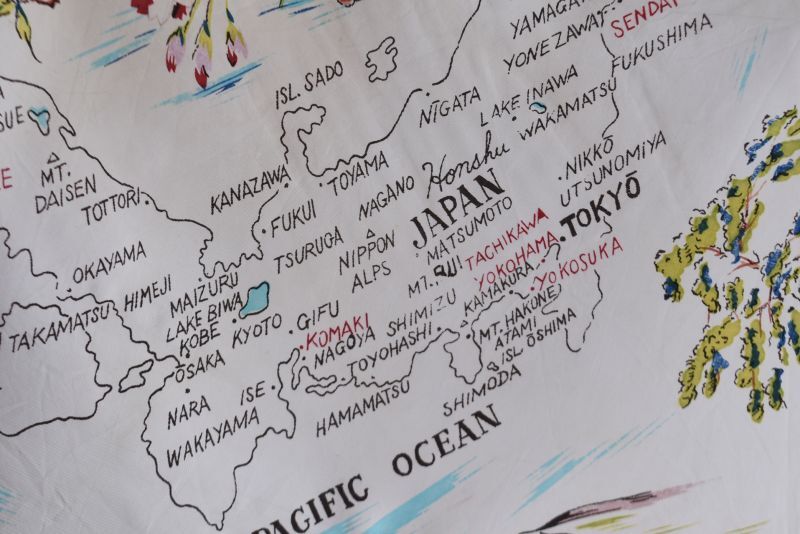 YAMAGA
SENDAI
YONEZAWA
FUKUSHIMA
ISL. SADO
NĪGATA
LAKE INAWA
WAKAMATSU
SUE
MT.
DAISEN
TOTTORI
KANAZAWA
TOYAMA
Honshu
NIKKŌ
UTSUNOMIYA
FUKUI
NAGANO
JAPAN
MATSUMOTO
TŌKYŌ
TACHIKAWA
YOKOHAMA
YOKOSUKA
OKAYAMA
TSURUGA
NIPPON
ALPS
HIMEJI
MAIZURU
LAKE BIWA
KOBE
KYOTO
GIFU
KOMAKI
NAGOYA
SHIMIZU
KAMAKURA
TAKAMATSU
ŌSAKA
TOYOHASHI
MT. HAKONE
ATAMI
ISL ŌSHIMA
NARA
ISE
WAKAYAMA
HAMAMATSU
SHIMODA
PACIFIC OCEAN